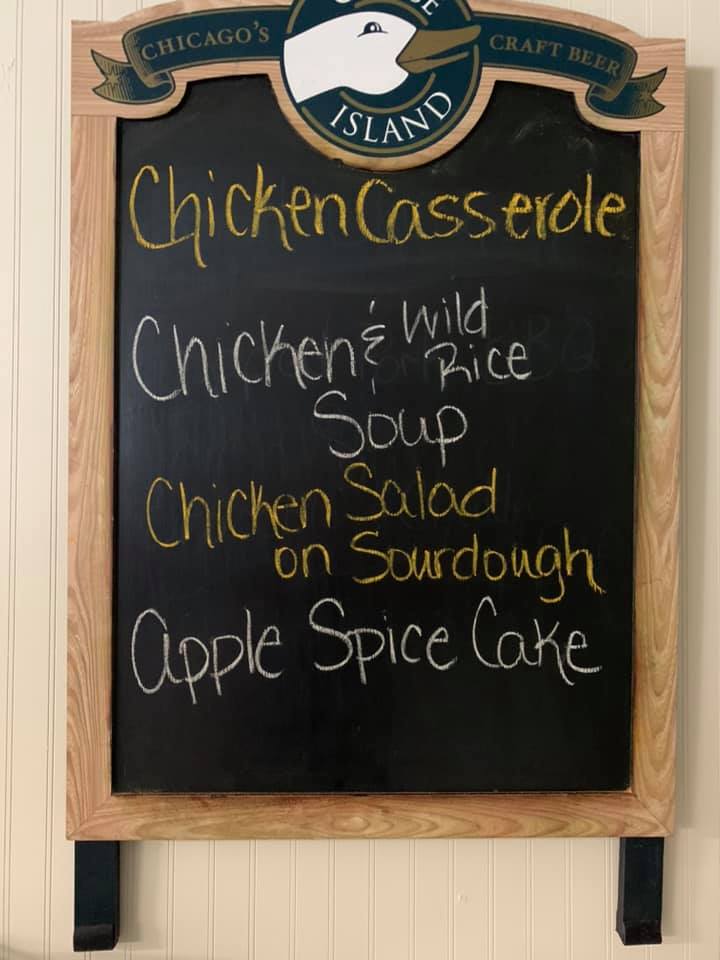 CHICAGO'S
CRAFT BEER
ISLAND
Chicken Casserole
Chicken & Wild
Rice
Soup
Chicken Salad
on Sourdough
Apple Spice Cake